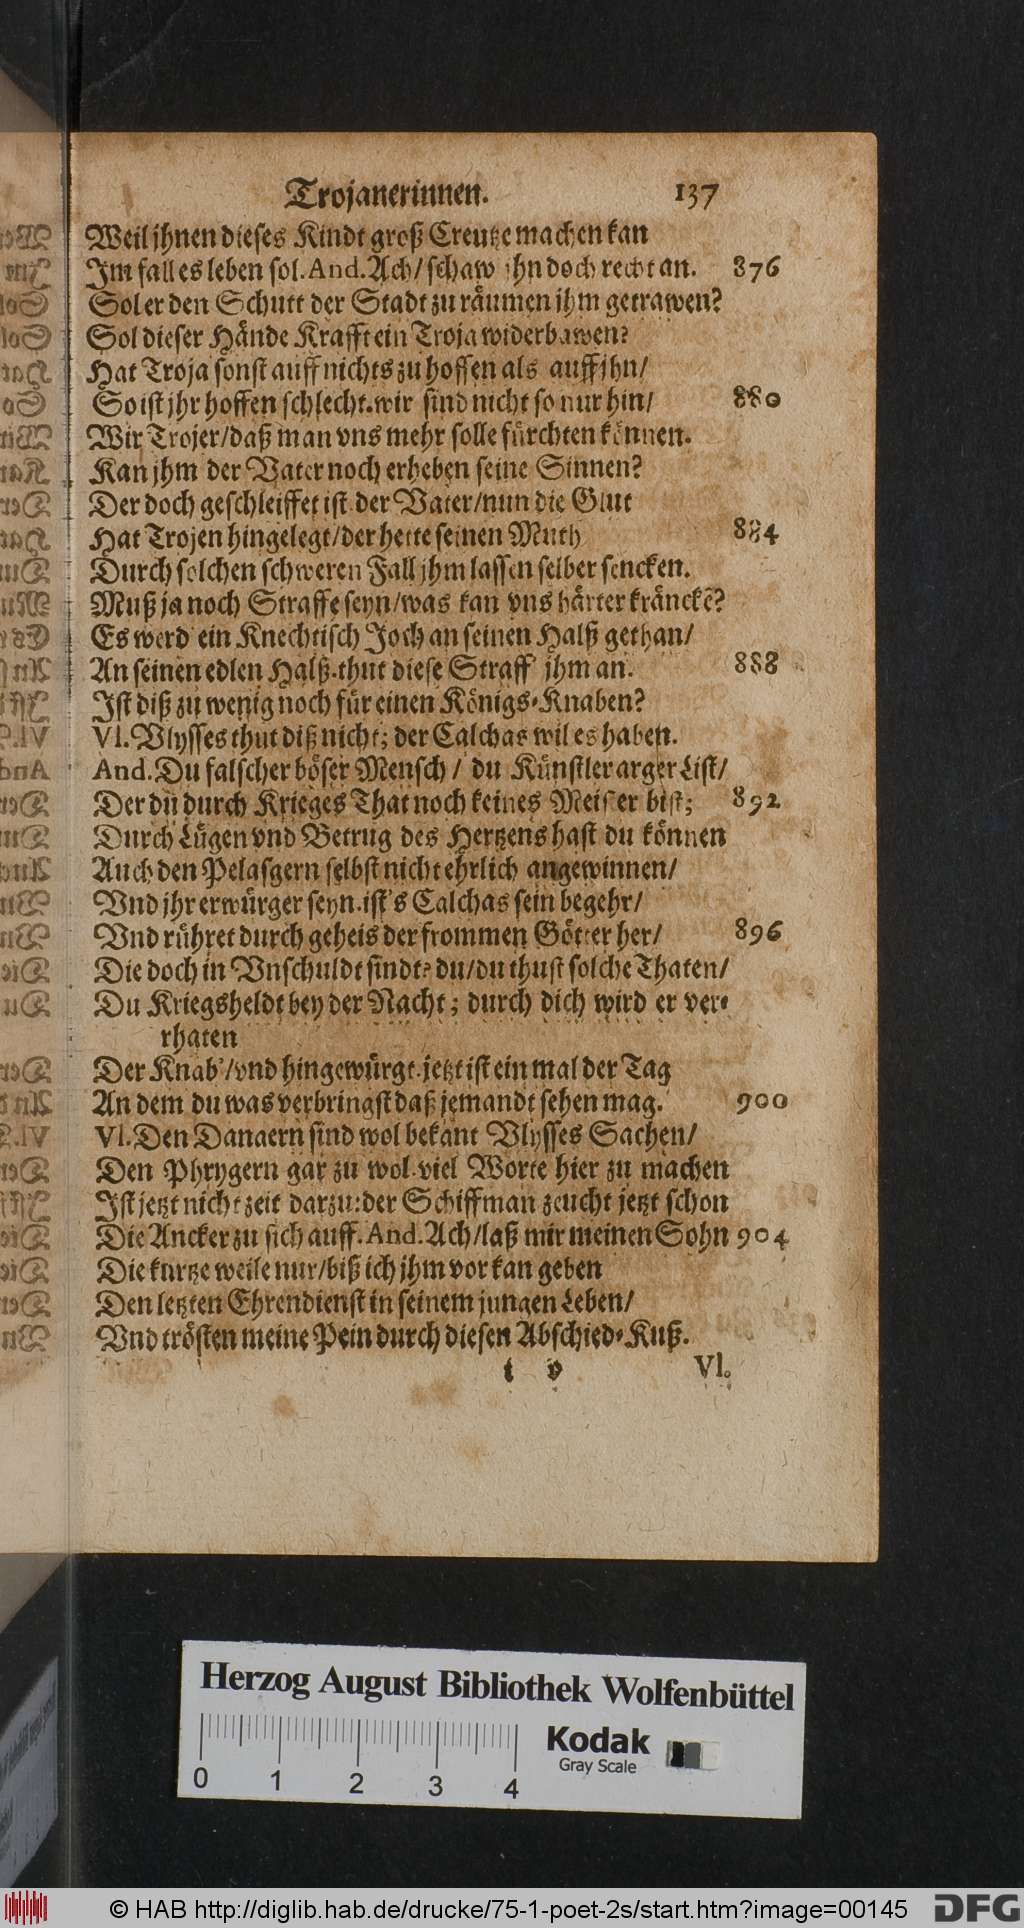 Trojanerinnen. 137
Weil jhnen dieses Kindt groß Creutze machen kan
Im fall es leben sol. And. Ach/ schaw jhn doch recht an. 876
Sol er den Schutt der Stadt zu räumen jhm getrawen?
Sol dieser Hände Krafft ein Troja widerbawen?
Hat Troja sonst auff nichts zu hoffen als auff jhn/
So ist jhr hoffen schlecht. wir sind nicht so nur hin/ 880
Wir Trojer/ daß man vns mehr solle fürchten können.
Kan jhm der Vater noch erheben seine Sinnen?
Der doch geschleiffet ist. der Vater/ nun die Glut
Hat Trojen hingelegt/ der hette seinen Muth 884
Durch solchen schweren Fall jhm lassen selber sencken.
Muß ja noch Straffe seyn/ was kan vns härter kränckẽ?
Es werd' ein Knechtisch Joch an seinen Halß gethan/
An seinen edlen Halß. thut diese Straff' jhm an. 888
Ist diß zu wenig noch für einen Königs-Knaben?
Vl. Vlysses thut diß nicht; der Calchas wil es haben.
And. Du falscher böser Mensch/ du Künstler arger List/
Der du durch Krieges That noch keines Meister bist; 892
Durch Lügen vnd Betrug des Hertzens hast du können
Auch den Pelasgern selbst nicht ehrlich angewinnen/
Vnd jhr erwürger seyn. ist's Calchas sein begehr/
Vnd rühret durch geheis der frommen Götter her/ 896
Die doch in Vnschuldt sindt? du/ du thust solche Thaten/
Du Kriegsheldt bey der Nacht; durch dich wird er ver-
rhaten
Der Knab'/ vnd hingewürgt. jetzt ist ein mal der Tag
An dem du was verbringst daß jemandt sehen mag. 900
Vl. Den Danaern sind wol bekant Vlysses Sachen/
Den Phrygern gar zu wol. viel Worte hier zu machen
Ist jetzt nicht zeit darzu: der Schiffman zeucht jetzt schon
Die Ancker zu sich auff. And. Ach/ laß mir meinen Sohn 904
Die kurtze weile nur/ biß ich jhm vor kan geben
Den letzten Ehrendienst in seinem jungen Leben/
Vnd trösten meine Pein durch diesen Abschied-Kuß.
t v Vl.
Herzog August Bibliothek Wolfenbüttel
Kodak
Gray Scale
0 1 2 3 4
© HAB http://diglib.hab.de/drucke/75-1-poet-2s/start.htm?image=00145 DFG